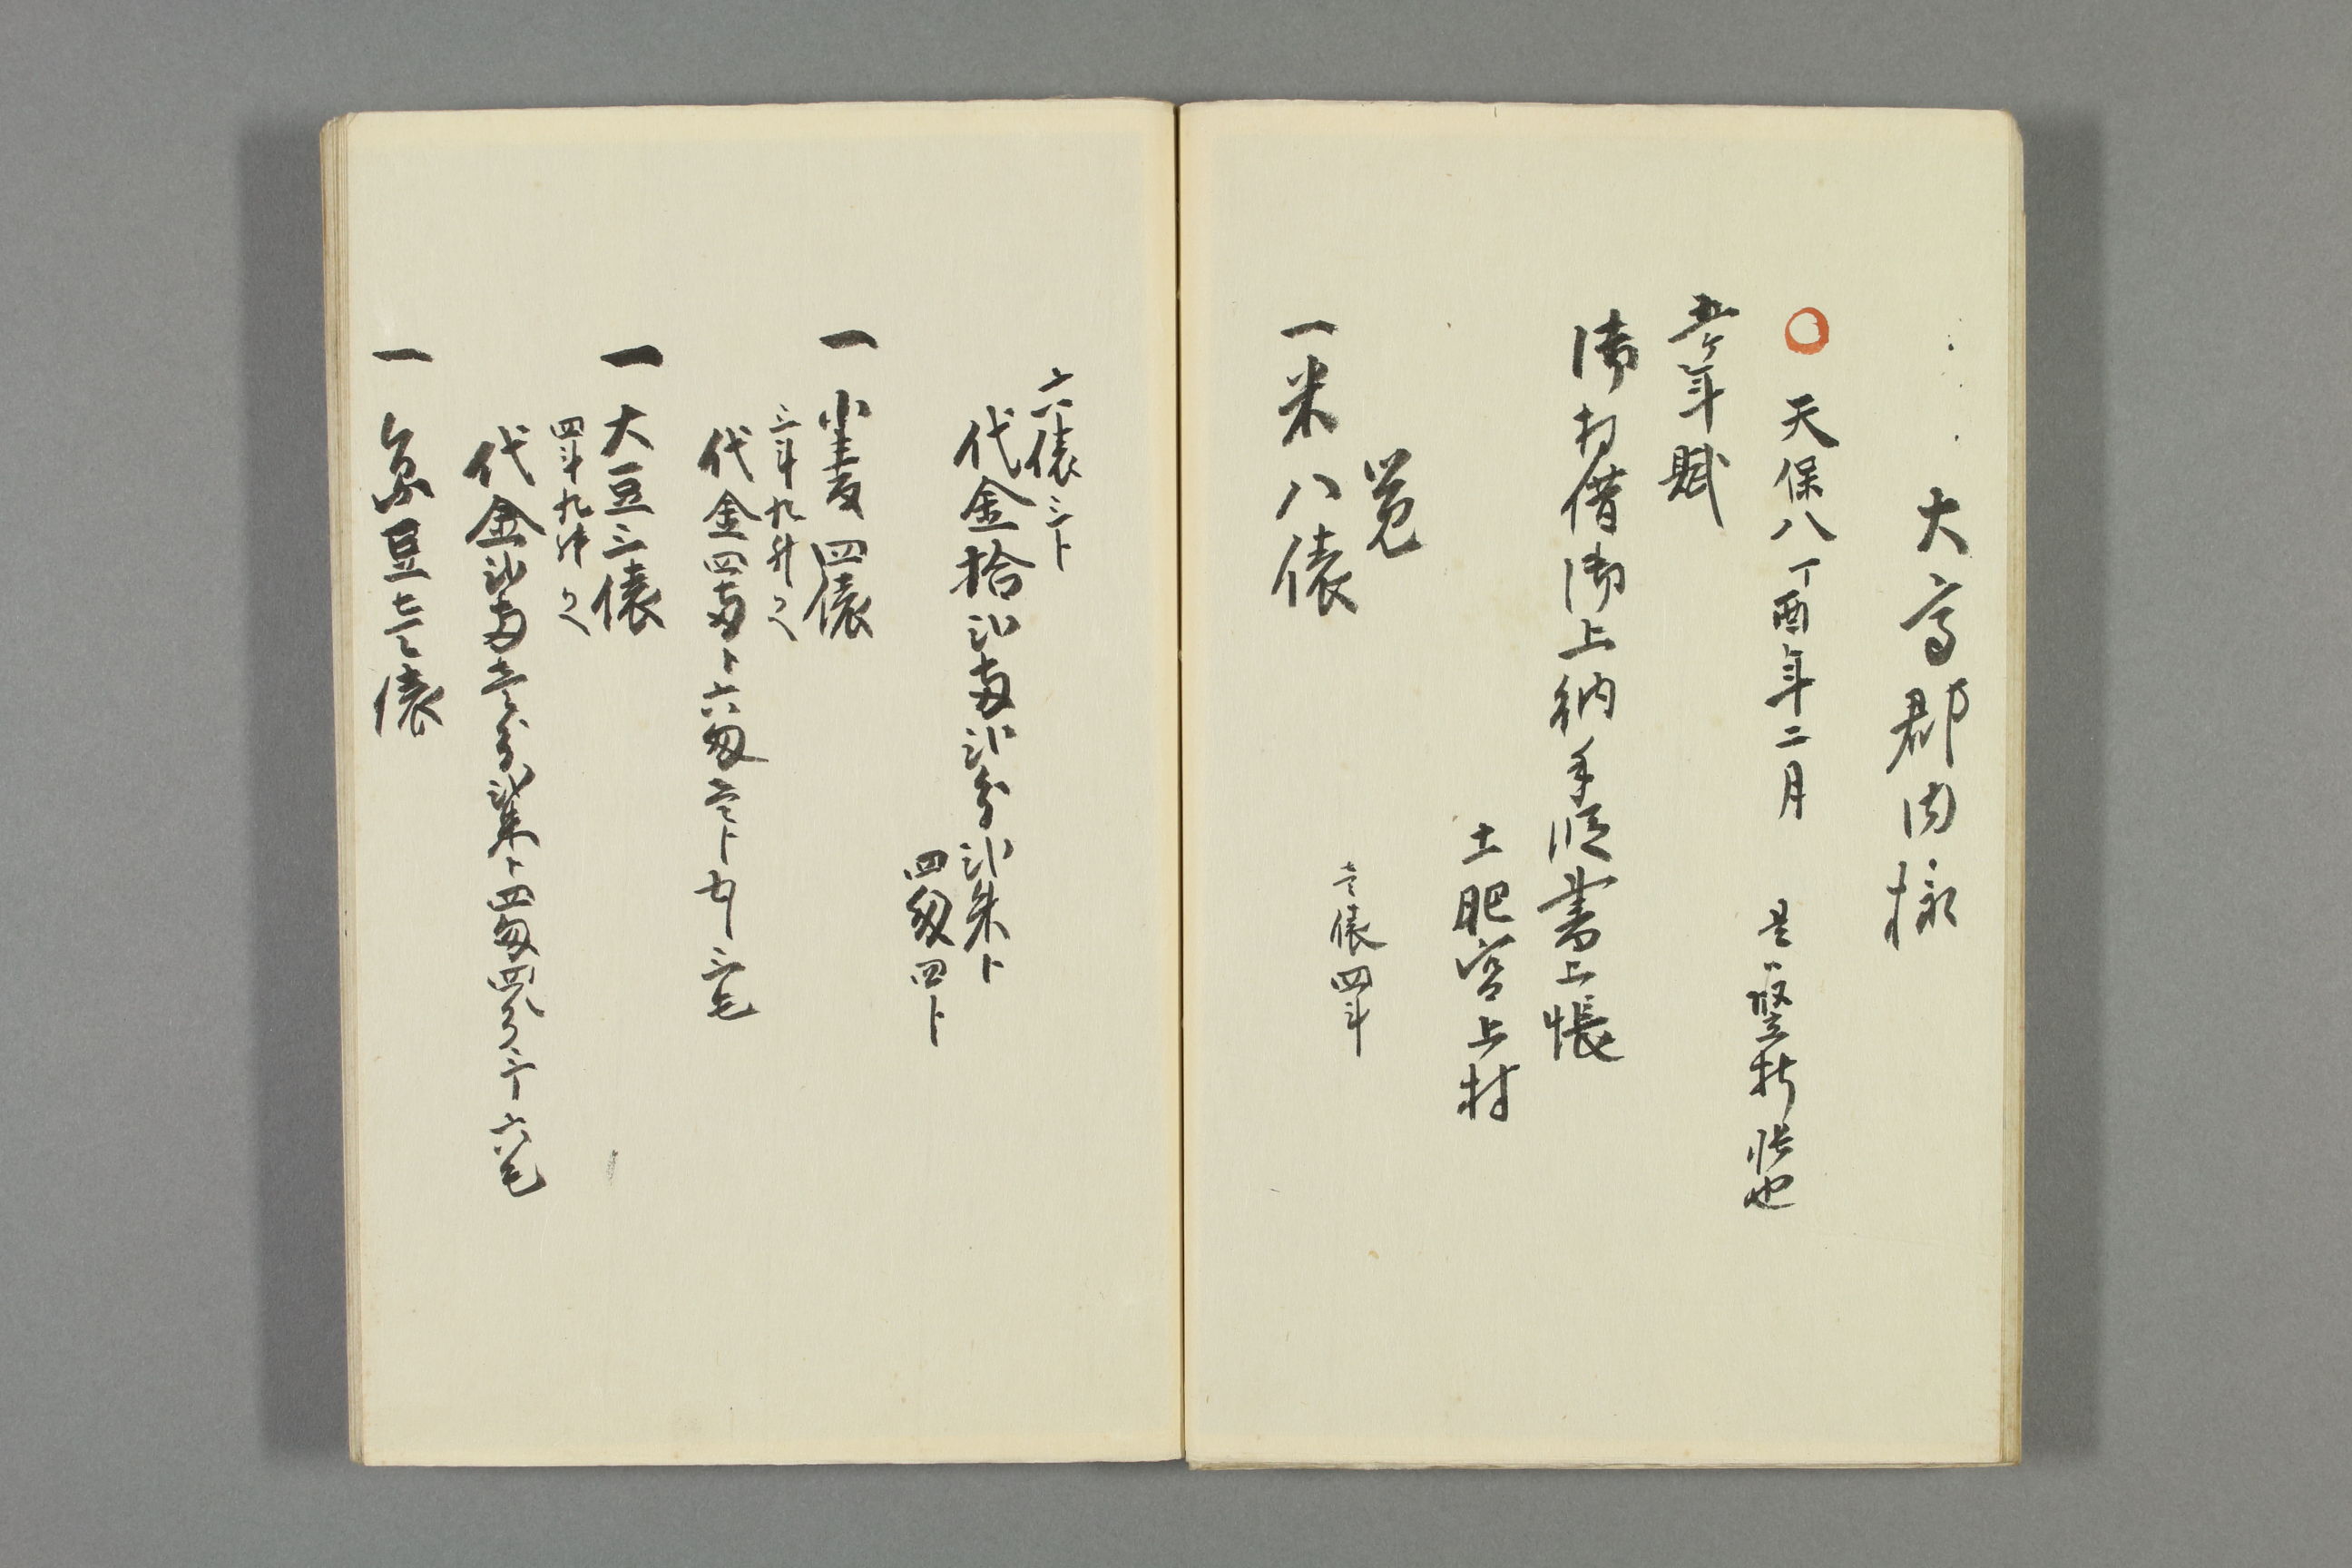 大高郡内様
天保八丁酉年二月 是ハ竪折帳也
五ケ年賦
御拝借御上納手順書上帳
土肥宮上村
覚
一米八俵
壱俵四斗
六俵三ト
代金拾弐両弐分弐朱ト
四匁四ト
一小麦四俵
三斗九升入
代金四両ト六匁壱ト
一大豆三俵
四斗九升入
代金弐両壱分弐朱ト四匁四分三リ六毛
一 豆壱俵